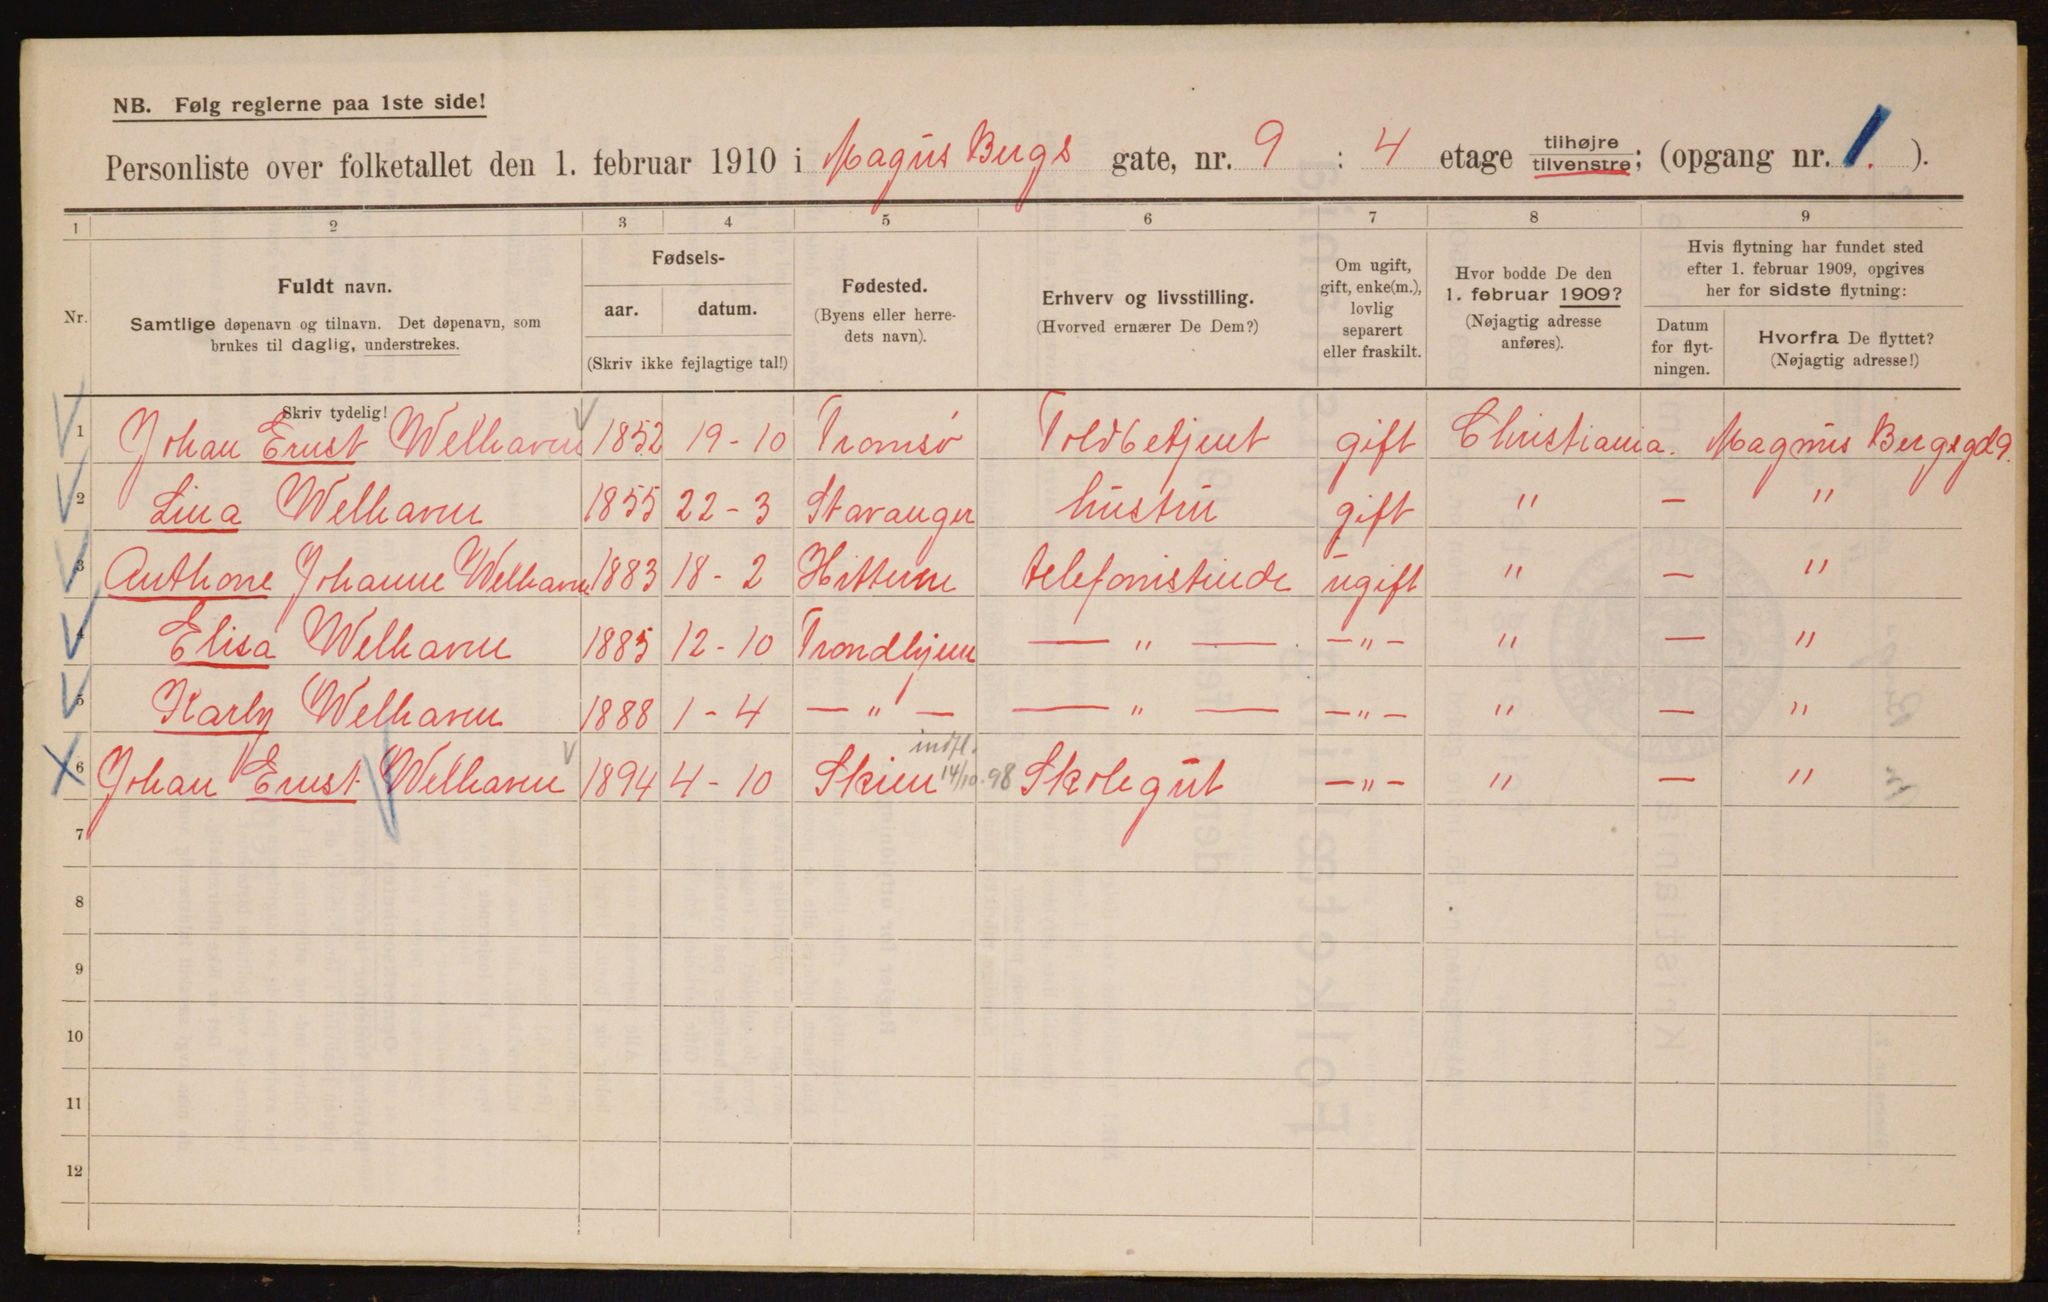 NB. Følg reglerne paa 1ste side!
Personliste over folketallet den 1. februar 1910 i Magnus Bergs gate, nr. 9 : 4 etage tilhøjre tilvenstre; (opgang nr. 1. ).
1 2 3 4 5 6 7 8 9
Nr.
Fuldt navn.
Samtlige døpenavn og tilnavn. Det døpenavn, som
brukes til daglig, understrekes.
Skriv tydelig!
Fødsels-
aar. datum.
(Skriv ikke fejlagtige tal!)
Fødested.
(Byens eller herre-
dets navn).
Erhverv og livsstilling.
(Hvorved ernærer De Dem?)
Om ugift,
gift, enke(m.),
lovlig
separert
eller fraskilt.
Hvor bodde De den
1. februar 1909?
(Nøjagtig adresse
anføres).
Hvis flytning har fundet sted
efter 1. februar 1909, opgives
her for sidste flytning:
Datum
for flyt-
ningen.
Hvorfra De flyttet?
(Nøjagtig adresse!)
1 Johan Ernst Welhaven 1852 19-10 Tromsø Toldbetjent gift Christiania. Magnus Bergsgd 9.
2 Lina Welhaven 1855 22-3 Stavanger hustru gift " — "
3 Anthone Johanne Welhaven 1883 18-2 Hitteren telefonistinde ugift " — "
4 Elisa Welhaven 1885 12-10 Trondhjem — " — — " — " — "
5 Karly Welhaven 1888 1-4 — " — — " — — " — " — "
6 Johan Ernst Welhaven 1894 4-10 Skien indfl. 14/10.98 Skolegut — " — " — "
7
8
9
10
11
12